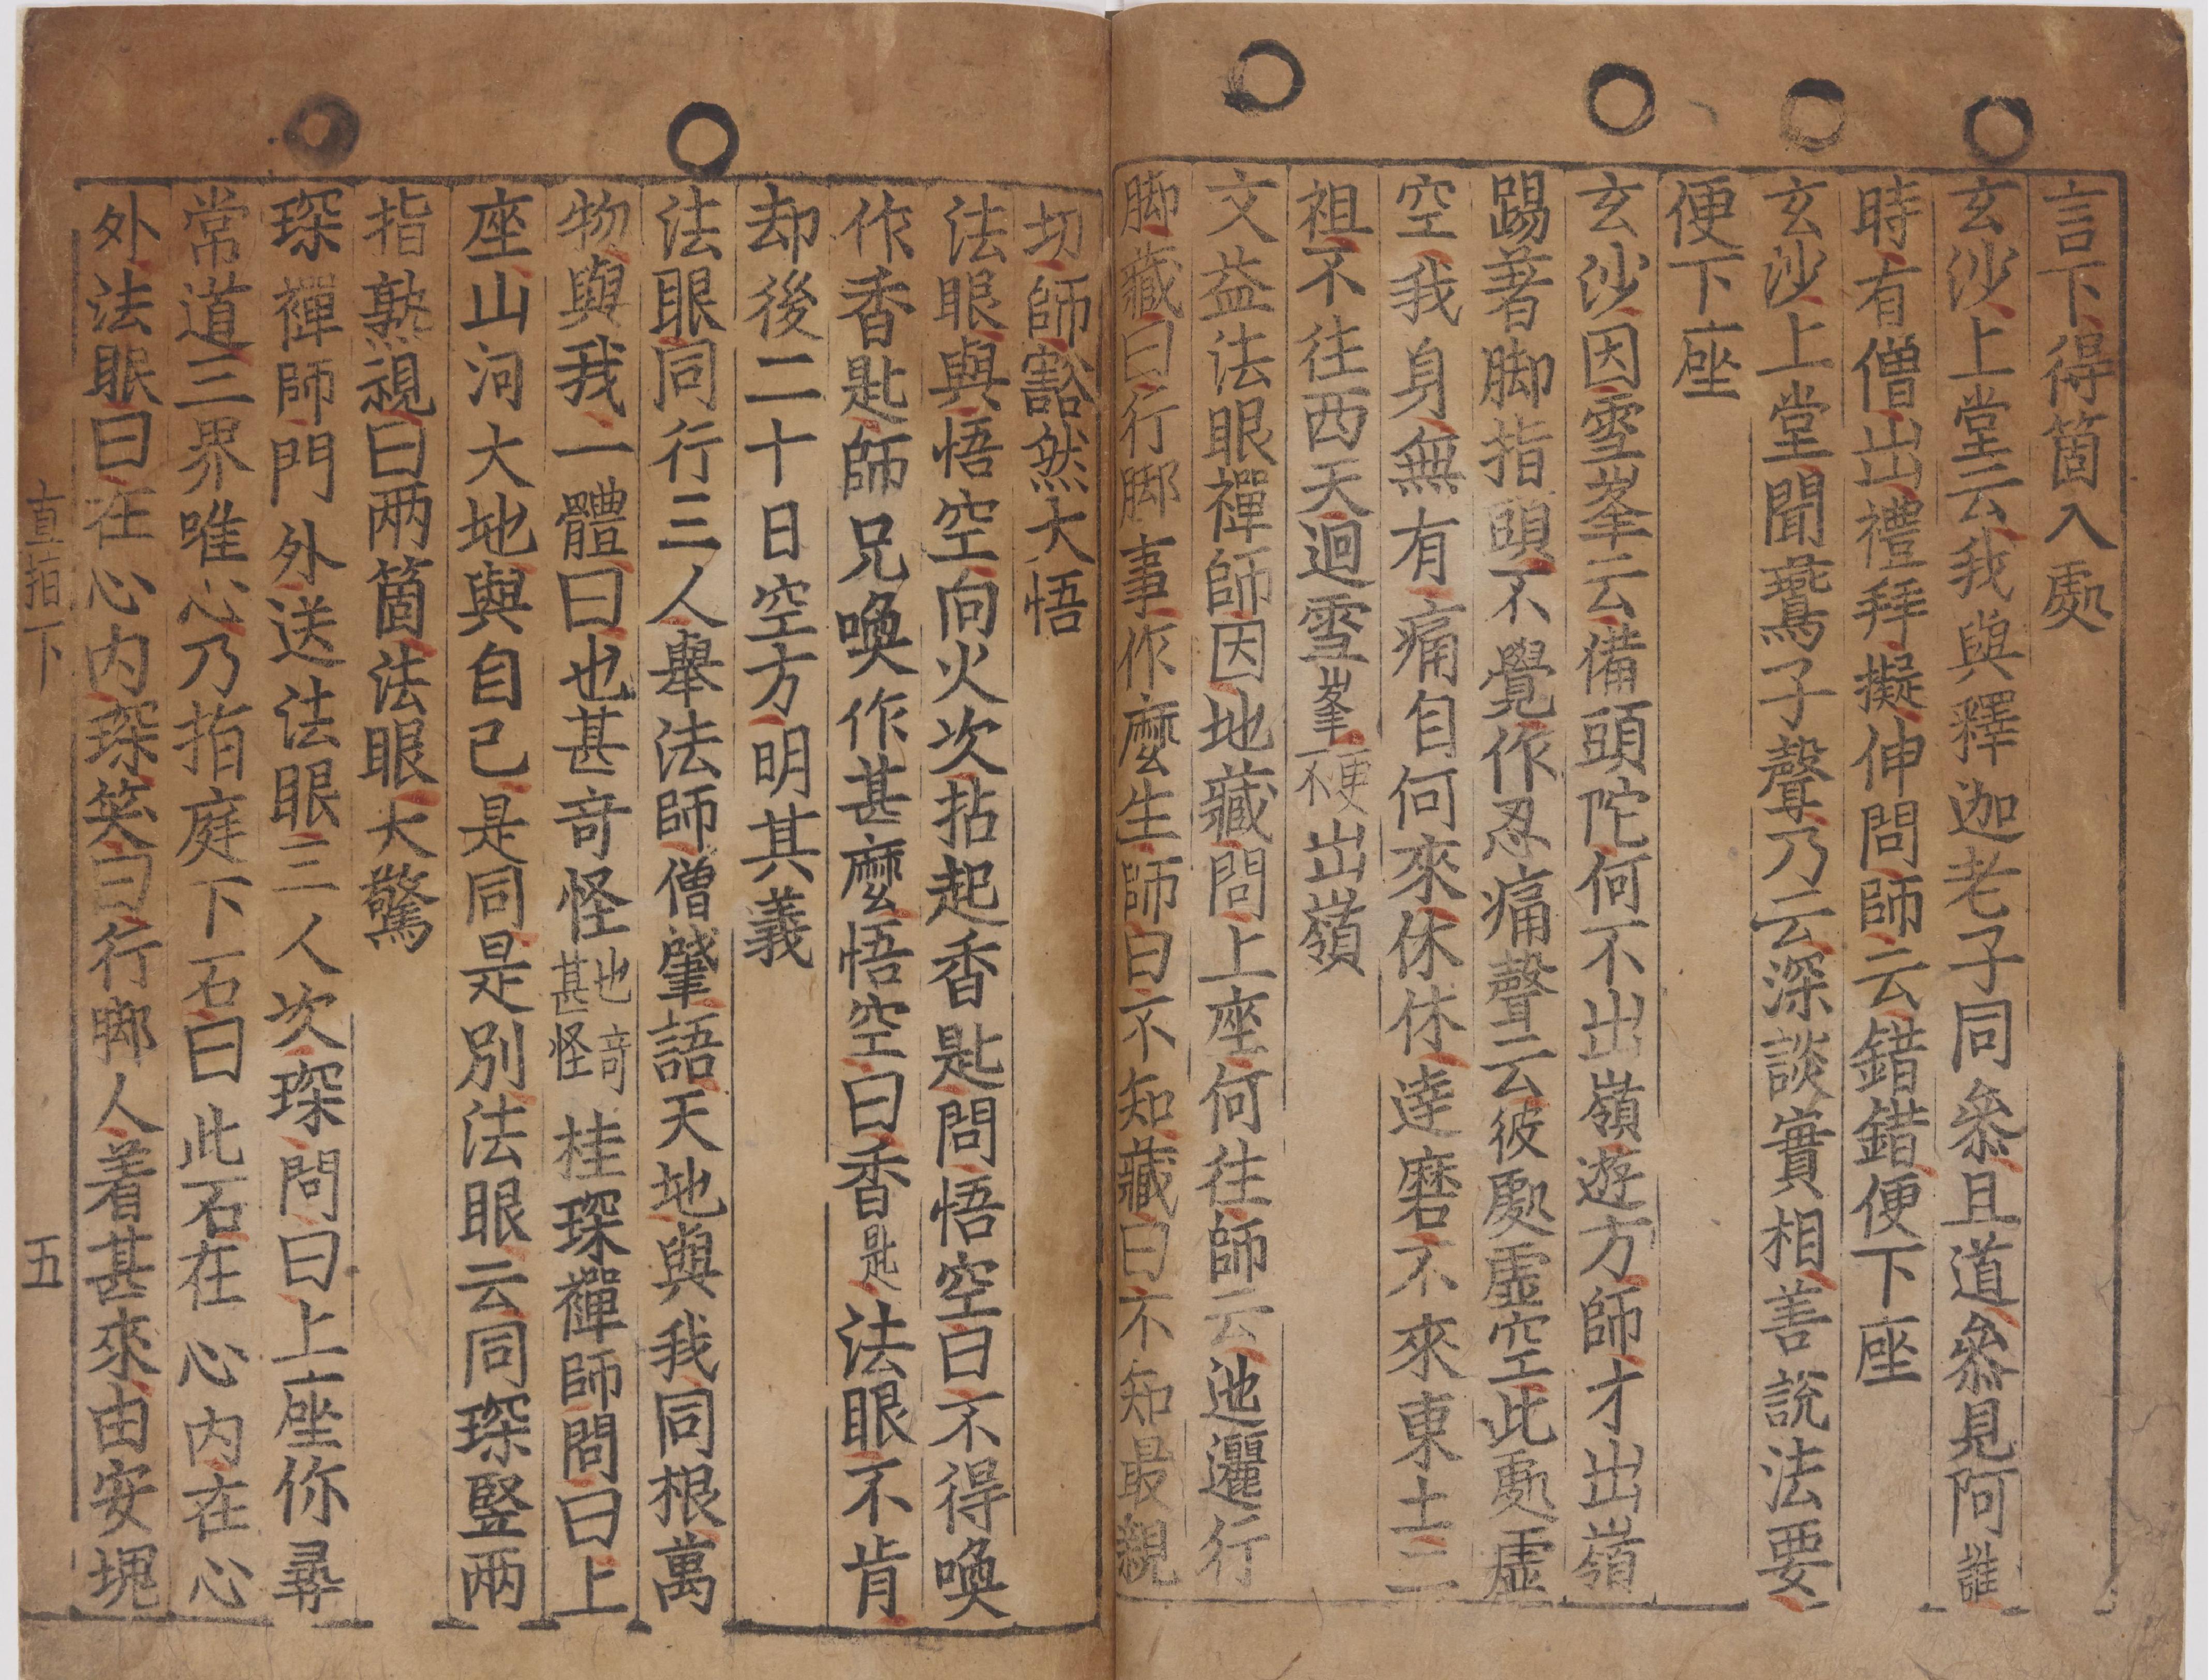 言下得箇入處
玄沙上堂云我與釋迦老子同叅且道叅見阿誰
時有僧出禮拜擬伸問師云錯錯便下座
玄沙上堂聞鷰子聲乃云深談實相善說法要
便下座
玄沙因雪峯云備頭陀何不出嶺遊方師才出嶺
踢著脚指頭不覺作忍痛聲云彼處虛空此處虛
空我身無有痛自何來休休達磨不來東土二
祖不往西天迴雪峯更不出嶺
文益法眼禪師因地藏問上座何往師云迤邐行
脚藏曰行脚事作麼生師曰不知藏曰不知最親
切師豁然大悟
法眼與悟空向火次拈起香匙問悟空曰不得喚
作香匙師兄喚作甚麼悟空曰香匙法眼不肯
却後二十日空方明其義
法眼同行三人舉法師僧肇語天地與我同根萬
物與我一體曰也甚竒怪也竒甚怪桂琛禪師問曰上
座山河大地與自己是同是別法眼云同琛竪兩
指熟視曰兩箇法眼大驚
琛禪師門外送法眼三人次琛問曰上座你尋
常道三界唯心乃指庭下石曰此石在心內在心
外法眼曰在心內琛笑曰行脚人着甚來由安塊
直指下 五